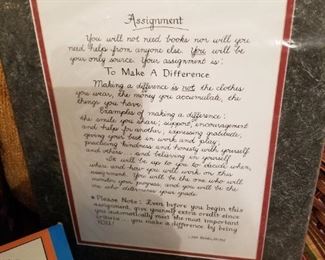 Assignment
You will not need books nor will you
need help from anyone else. You will be
your only source. Your assignment is:
To Make A Difference
Making a difference is not the clothes
you wear, the money you accumulate, the
things you have.
Examples of making a difference:
the smile you share; support, encouragement
and help for another; expressing gratitude,
giving your best in work and play;
practicing kindness and honesty with yourself
and others - and believing in yourself.
It will be up to you to decide when,
where and how you will work on this
assignment. You will be the one who will
monitor your progress, and you will be the
one who determines your grade.
* Please Note: Even before you begin this
assignment, give yourself extra credit since
you automatically meet the most important
you make a difference by being
YOU!